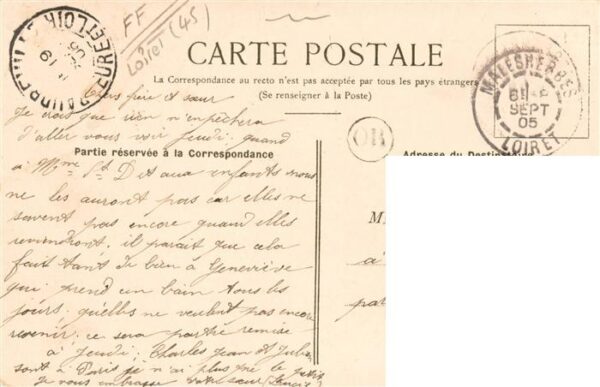 FF
Loiret (45)
CARTE POSTALE
La Correspondance au recto n'est pas acceptée par tous les pays étrangers
(Se renseigner à la Poste)
MALESHERBES
SEPT
05
LOIRET
EURE-ET-LOIR
19
OR
Chers frère et sœur
Je crois que rien n'empêchera
d'aller vous voir Jeudi. quand
Partie réservée à la Correspondance
Adresse du Destinataire
à Mme St D et aux enfants nous
ne les auront pas car elles ne
savent pas encore quand elles
reviendront, il parait que cela
fait tant de bien à Geneviève
qui prend un bain tous les
jours, qu'elles ne veulent pas encore
revenir ce sera partie remise
à Jeudi, Charles Jean et
sont à Paris je n'ai plus que le
Je vous embrasse votre sœur
M
à
par